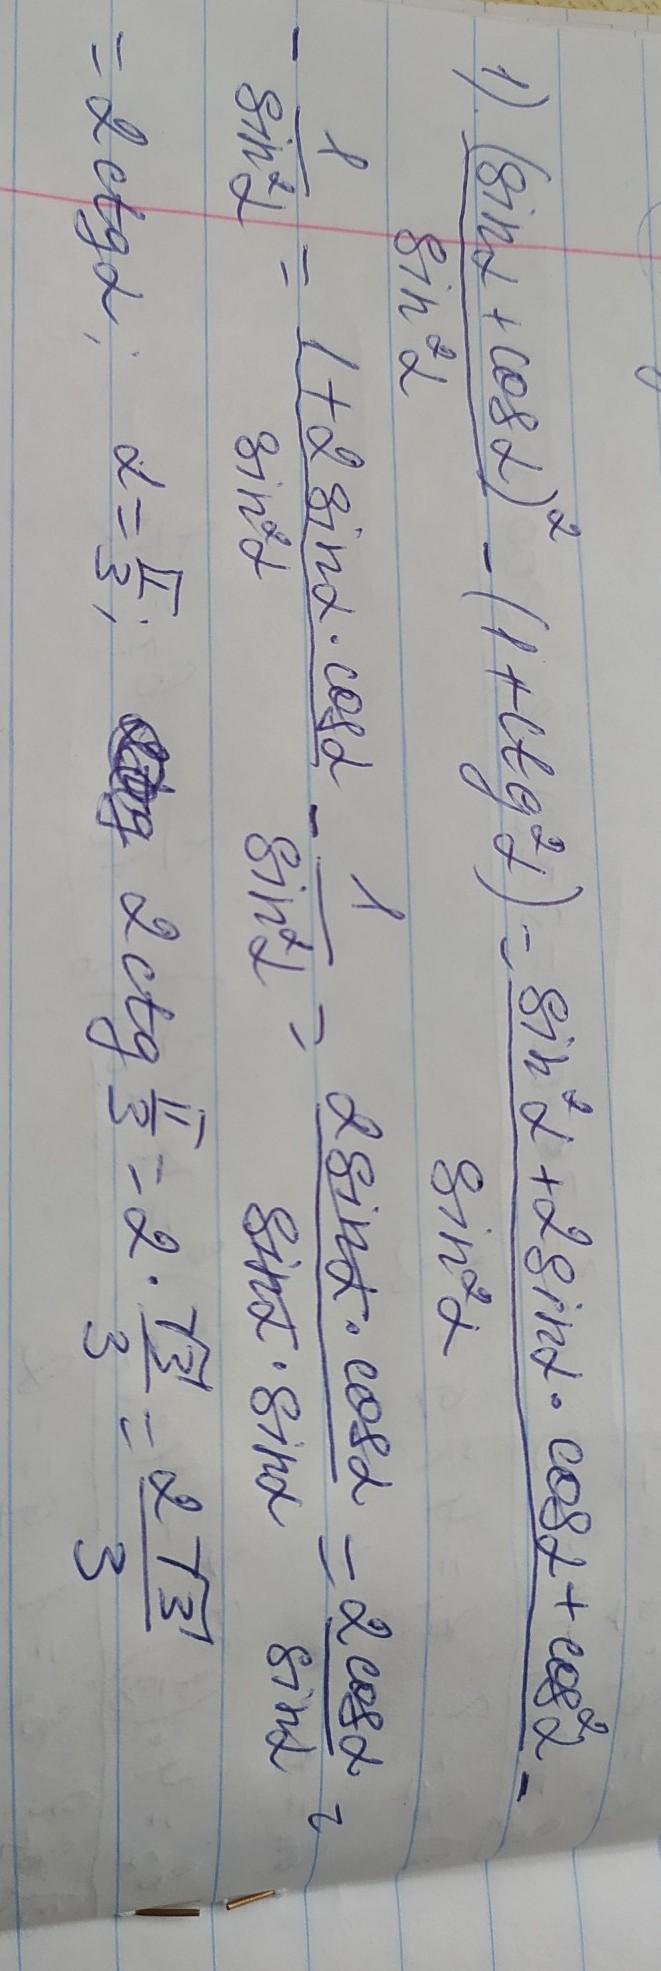 1) (sinα + cosα)² / sin²α - (1 + ctg²α) = sin²α + 2sinα · cosα + cos²α / sin²α -
- 1 / sin²α = 1 + 2sinα · cosα / sin²α - 1 / sin²α = 2sinα · cosα / sinα · sinα = 2cosα / sinα =
= 2ctgα; α = π/3; 2ctg π/3 = 2 · √3/3 = 2√3/3